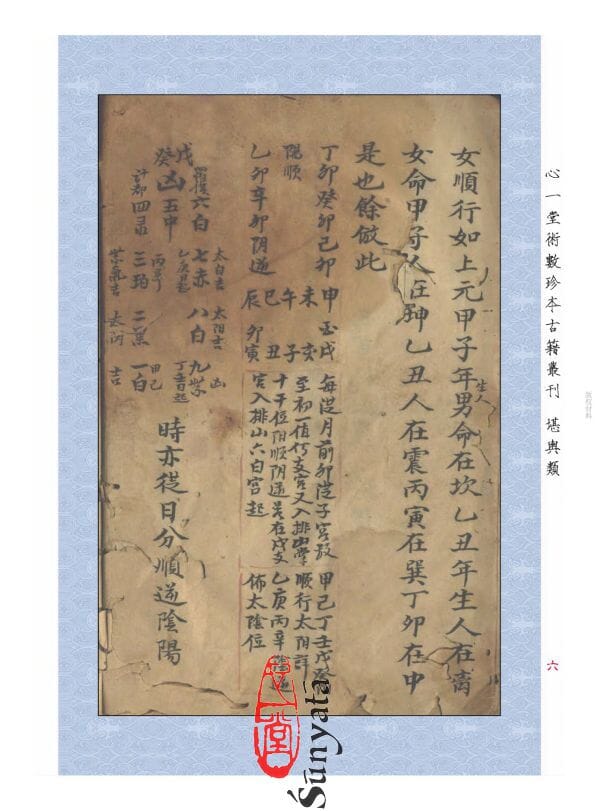 心一堂術數珍本古籍叢刊 堪輿類
六
版权材料
女順行如上元甲子年男命在坎乙丑年生人在离
生人
女命甲子人在坤乙丑人在震丙寅在巽丁卯在中
是也餘倣此
丁卯癸卯己卯
陽順
乙卯辛卯阴逆
申 酉戌
未 亥
午 子
巳 丑
辰 卯寅
每從月前卯從子宮数
至初一值何支宮又入排山掌
十干位阳順阴逆在戌支
宮入排山六白宮起
甲己丁壬戊癸
順行太阳詳
乙庚丙辛阴逆
佈太陰位
戊癸
凶
五中
羅睺六白
計都四录
太白吉
七赤
乙庚日起
丙辛
三碧
紫氣吉
太阳吉
八白
二黑
太阴
凶
九紫
丁壬日起
甲己
一白
吉
時亦從日分順逆陰陽
心一堂
Śūnyatā